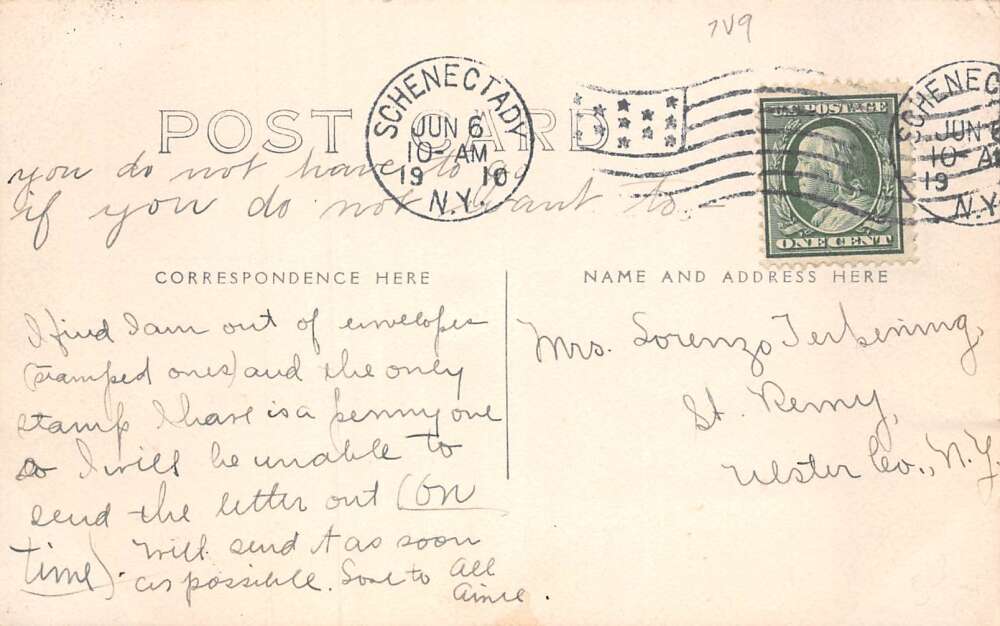 7V9
POST CARD
SCHENECTADY
JUN 6
10-AM
1910
N.Y.
U.S. POSTAGE
ONE CENT
SCHENEC
JUN 6
10-A
19
N.Y.
you do not have to go
if you do not want to.
CORRESPONDENCE HERE
NAME AND ADDRESS HERE
I find I am out of envelopes
(stamped ones) and the only
stamp I have is a penny one
so I will be unable to
send the letter out (on
time). Will send it as soon
as possible. Love to all
Mrs. Lorenzo Terbening,
St. Remy,
Ulster Co., N.Y.